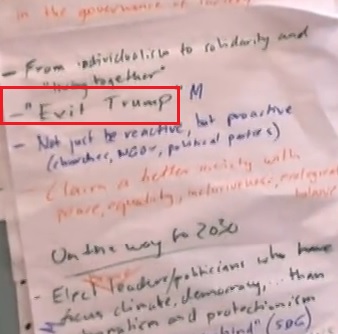 in the governance of
- From individualism to solidarity and
"living together"
- "Exit Trump" M
- Not just be reactive, but proactive
(churches, NGOs, political parties)
Claim a better society with
peace, equality, inclusiveness, ecological
balance
On the way to 2030
- Elect leaders/politicians who have
focus climate, democracy, ... than
and protectionism
" (SDG)